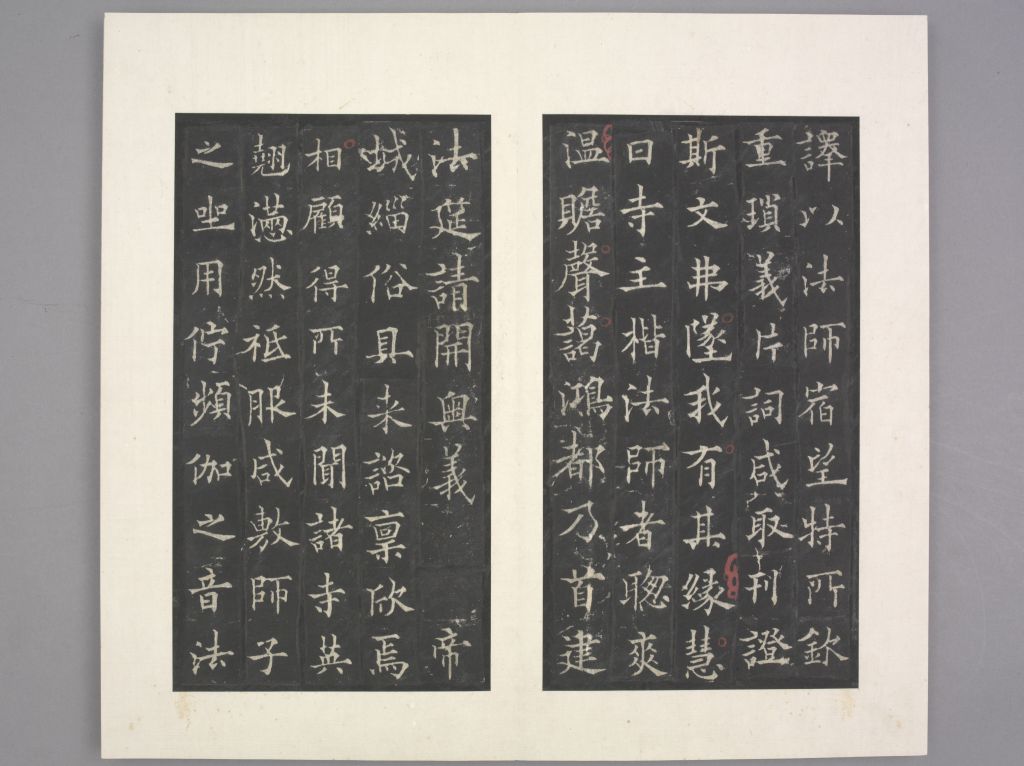 譯以法師宿望特所欽
重瑣義片詞咸取刊證
斯文弗墜我有其緣慧
日寺主楷法師者聰爽
温贍聲藹鴻都乃首建
法筵請開奧義 帝
城緇俗具來諮稟欣焉
相顧得所未聞諸寺英
翹懣然祇服咸敷師子
之坐用佇頻伽之音法